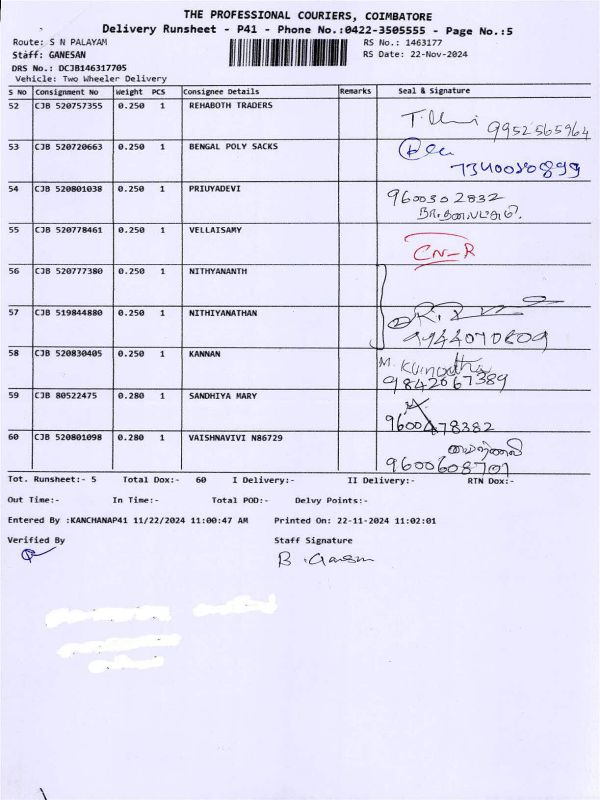 THE PROFESSIONAL COURIERS, COIMBATORE
Delivery Runsheet - P41 - Phone No.:0422-3505555 - Page No.:5
Route: S N PALAYAM RS No.: 1463177
Staff: GANESAN RS Date: 22-Nov-2024
DRS No.: DCJB146317705
Vehicle: Two Wheeler Delivery
S No Consignment No Weight PCS Consignee Details Remarks Seal & Signature
52 CJB 520757355 0.250 1 REHABOTH TRADERS
9952565964
53 CJB 520720663 0.250 1 BENGAL POLY SACKS
54 CJB 520801038 0.250 1 PRIUYADEVI 9600302832
55 CJB 520778461 0.250 1 VELLAISAMY
CN-R
56 CJB 520777380 0.250 1 NITHYANANTH
57 CJB 519844880 0.250 1 NITHIYANATHAN
58 CJB 520830405 0.250 1 KANNAN
9842067389
59 CJB 80522475 0.280 1 SANDHIYA MARY
9600478382
60 CJB 520801098 0.280 1 VAISHNAVIVI N86729
9600608701
Tot. Runsheet:- 5 Total Dox:- 60 I Delivery:- II Delivery:- RTN Dox:-
Out Time:- In Time:- Total POD:- Delvy Points:-
Entered By :KANCHANAP41 11/22/2024 11:00:47 AM Printed On: 22-11-2024 11:02:01
Verified By Staff Signature
B. Ganesan